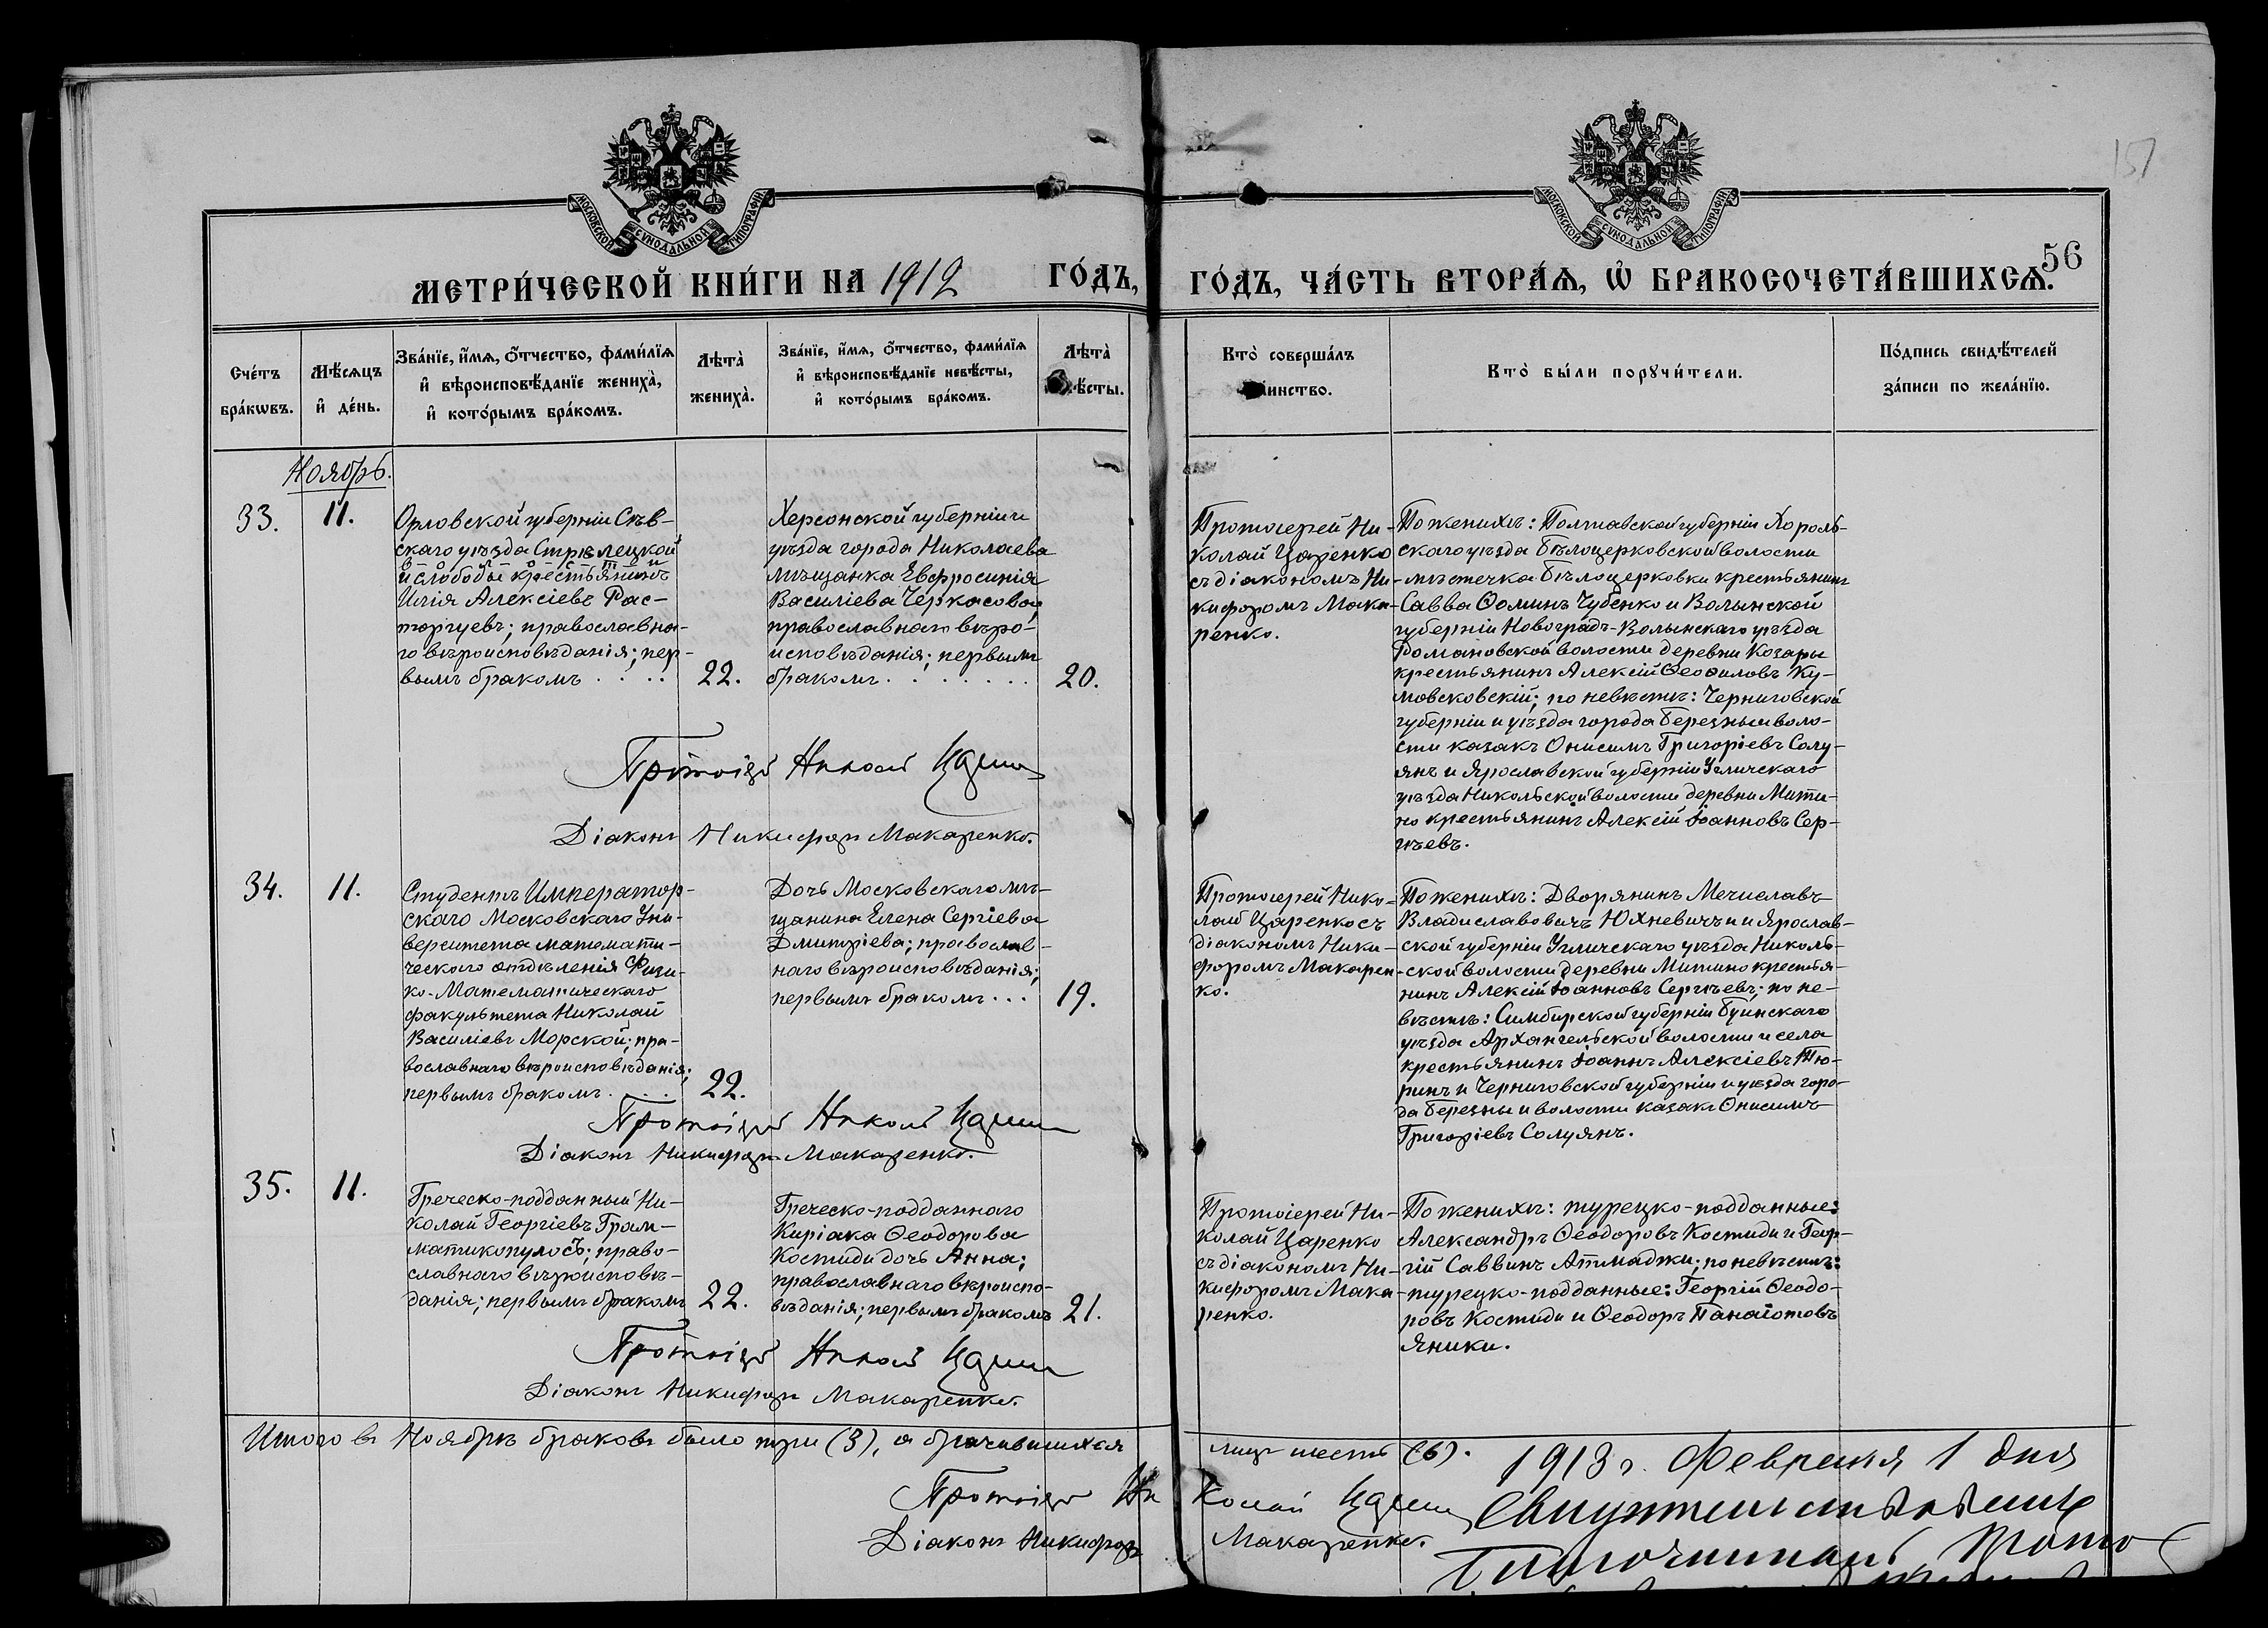 157
МОСКОВСКОЙ СѴНОДАЛЬНОЙ ТИПОГРАФІИ
МОСКОВСКОЙ СѴНОДАЛЬНОЙ ТИПОГРАФІИ
56
МЕТРИ́ЧЕСКОЙ КНИ́ГИ НА 1912 ГО́ДЪ,
ГО́ДЪ, ЧА́СТЬ ВТОРА́Ѧ, Ѽ БРАКОСОЧЕТА́ВШИХСѦ.
Сче́тъ
бра́кѡвъ.
Мѣ́сѧцъ
и҆ де́нь.
Зва́нїе, и҆́мѧ, ѻ҆́тчество, фамѝлїѧ
и҆ вѣроисповѣ́данїе жениха̀,
и҆ кото́рымъ бра́комъ.
Лѣта̀
жениха̀.
Зва́нїе, и҆́мѧ, ѻ҆́тчество, фамѝлїѧ
и҆ вѣроисповѣ́данїе невѣ́сты,
и҆ кото́рымъ бра́комъ.
Лѣта̀
невѣ́сты.
Кто̀ соверша́лъ
таинство.
Кто̀ бы́ли порꙋчи́тели.
По́дпись свидѣ́телей
за́писи по жела́нїю.
Ноябрь.
33.
11.
Орловской губерніи Сѣв-
скаго уѣзда Стрѣлецкой
волости
и слободы крестьянинъ
Илія Алексіевъ Рас-
торгуевъ; православна-
го вѣроисповѣданія; пер-
вымъ бракомъ . . . .
22.
Херсонской губерніи и
уѣзда города Николаева
мѣщанка Евфросинія
Василіева Черкасова;
православнаго вѣро-
исповѣданія; первымъ
бракомъ . . . . . . .
20.
Протоіерей Ни-
колай Царенко
съ діакономъ Ни-
кифоромъ Мака-
ренко.
По женихѣ: Полтавской губерніи Хороль-
скаго уѣзда Бѣлоцерковской волости
мѣстечка Бѣлоцерковки крестьянинъ
Савва Ѳоминъ Чубенко и Волынской
губерніи Новоградъ-Волынскаго уѣзда
Романовской волости деревни Козары
крестьянинъ Алексій Ѳеофиловъ Ку-
мовсковскій; по невѣстѣ: Черниговской
губерніи и уѣзда города Березны и воло-
сти казакъ Онисимъ Григоріевъ Солу-
янъ и Ярославской губерніи Угличскаго
уѣзда Никольской волости деревни Мити-
но крестьянинъ Алексій Іоанновъ Сер-
гѣевъ.
Протоіерей Николай Царенко
Діаконъ Никифоръ Макаренко.
34.
11.
Студентъ Император-
скаго Московскаго Уни-
верситета математи-
ческаго отдѣленія Физи-
ко-Математическаго
факультета Николай
Василіевъ Морской; пра-
вославнаго вѣроисповѣданія;
первымъ бракомъ . . . .
22.
Дочь Московскаго мѣ-
щанина Елена Сергіева
Дмитріева; православ-
наго вѣроисповѣданія;
первымъ бракомъ . . .
19.
Протоіерей Нико-
лай Царенко съ
діакономъ Ники-
форомъ Макарен-
ко.
По женихѣ: Дворянинъ Мечиславъ
Владиславовичъ Юхневичъ и Ярослав-
ской губерніи Угличскаго уѣзда Николь-
ской волости деревни Митино крестья-
нинъ Алексій Іоанновъ Сергѣевъ; по не-
вѣстѣ: Симбирской губерніи Буинскаго
уѣзда Архангельской волости и села
крестьянинъ Іоаннъ Алексіевъ Тю-
ринъ и Черниговской губерніи и уѣзда горо-
да Березны и волости казакъ Онисимъ
Григоріевъ Солуянъ.
Протоіерей Николай Царенко
Діаконъ Никифоръ Макаренко.
35.
11.
Греческо-подданный Ни-
колай Георгіевъ Грам-
матикопулосъ; право-
славнаго вѣроисповѣ-
данія; первымъ бракомъ
22.
Греческо-подданнаго
Киріака Ѳеодорова
Костиди дочь Анна;
православнаго вѣроиспо-
вѣданія; первымъ бракомъ
21.
Протоіерей Ни-
колай Царенко
съ діакономъ Ни-
кифоромъ Мака-
ренко.
По женихѣ: турецко-подданные:
Александръ Ѳеодоровъ Костиди и Геор-
гій Саввинъ Атмаджи; по невѣстѣ:
турецко-подданные: Георгій Ѳеодо-
ровъ Костиди и Ѳеодоръ Панаіотовъ
Яники.
Протоіерей Николай Царенко
Діаконъ Никифоръ Макаренко.
Итого въ Ноябрѣ браковъ было три (3), а брачившихся лицъ шесть (6).
Протоіерей Николай Царенко
Діаконъ Никифоръ Макаренко.
1913 г. Февраля 1 дня
Свидѣтельствовалъ
Благочинный